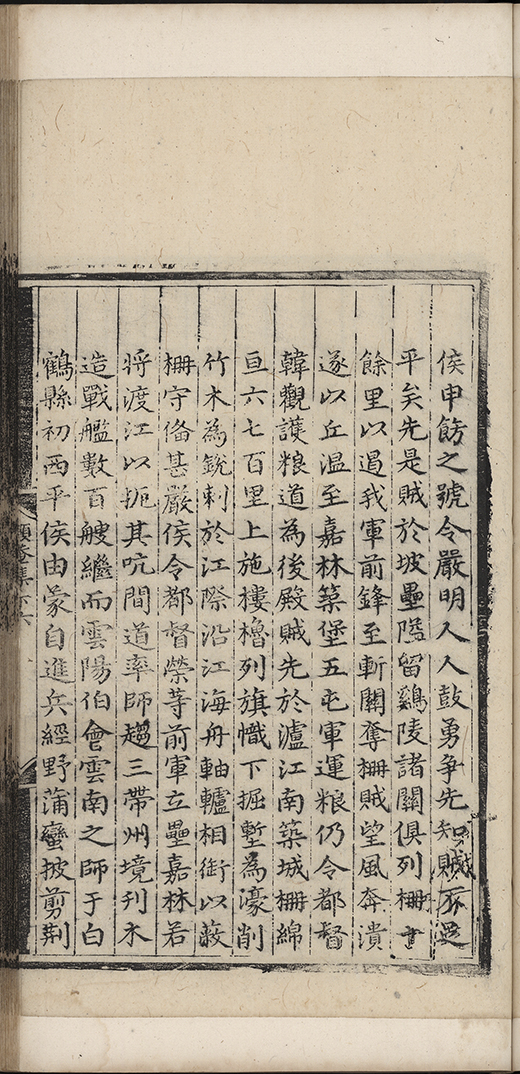 侯申飭之號令嚴明人人鼓勇爭先知賊不
平矣先是賊於坡壘隘留鷄陵諸關俱列柵
餘里以遏我軍前鋒至斬關奪柵賊望風奔潰
遂以丘溫至嘉林築堡五屯軍運粮仍令都督
韓觀護粮道為後殿賊先於瀘江南築城柵綿
亘六七百里上施樓櫓列旗幟下掘塹為濠削
竹木為銳刺於江際沿江海舟軸轤相銜以蔽
柵守俻甚嚴侯令都督榮等前軍立壘嘉林若
將渡江以扼其吭間道率師趨三帶州境刊木
造戰艦數百艘繼而雲陽伯會雲南之師于白
鶴縣初西平侯由蒙自進兵經野蒲蠻披剪荆